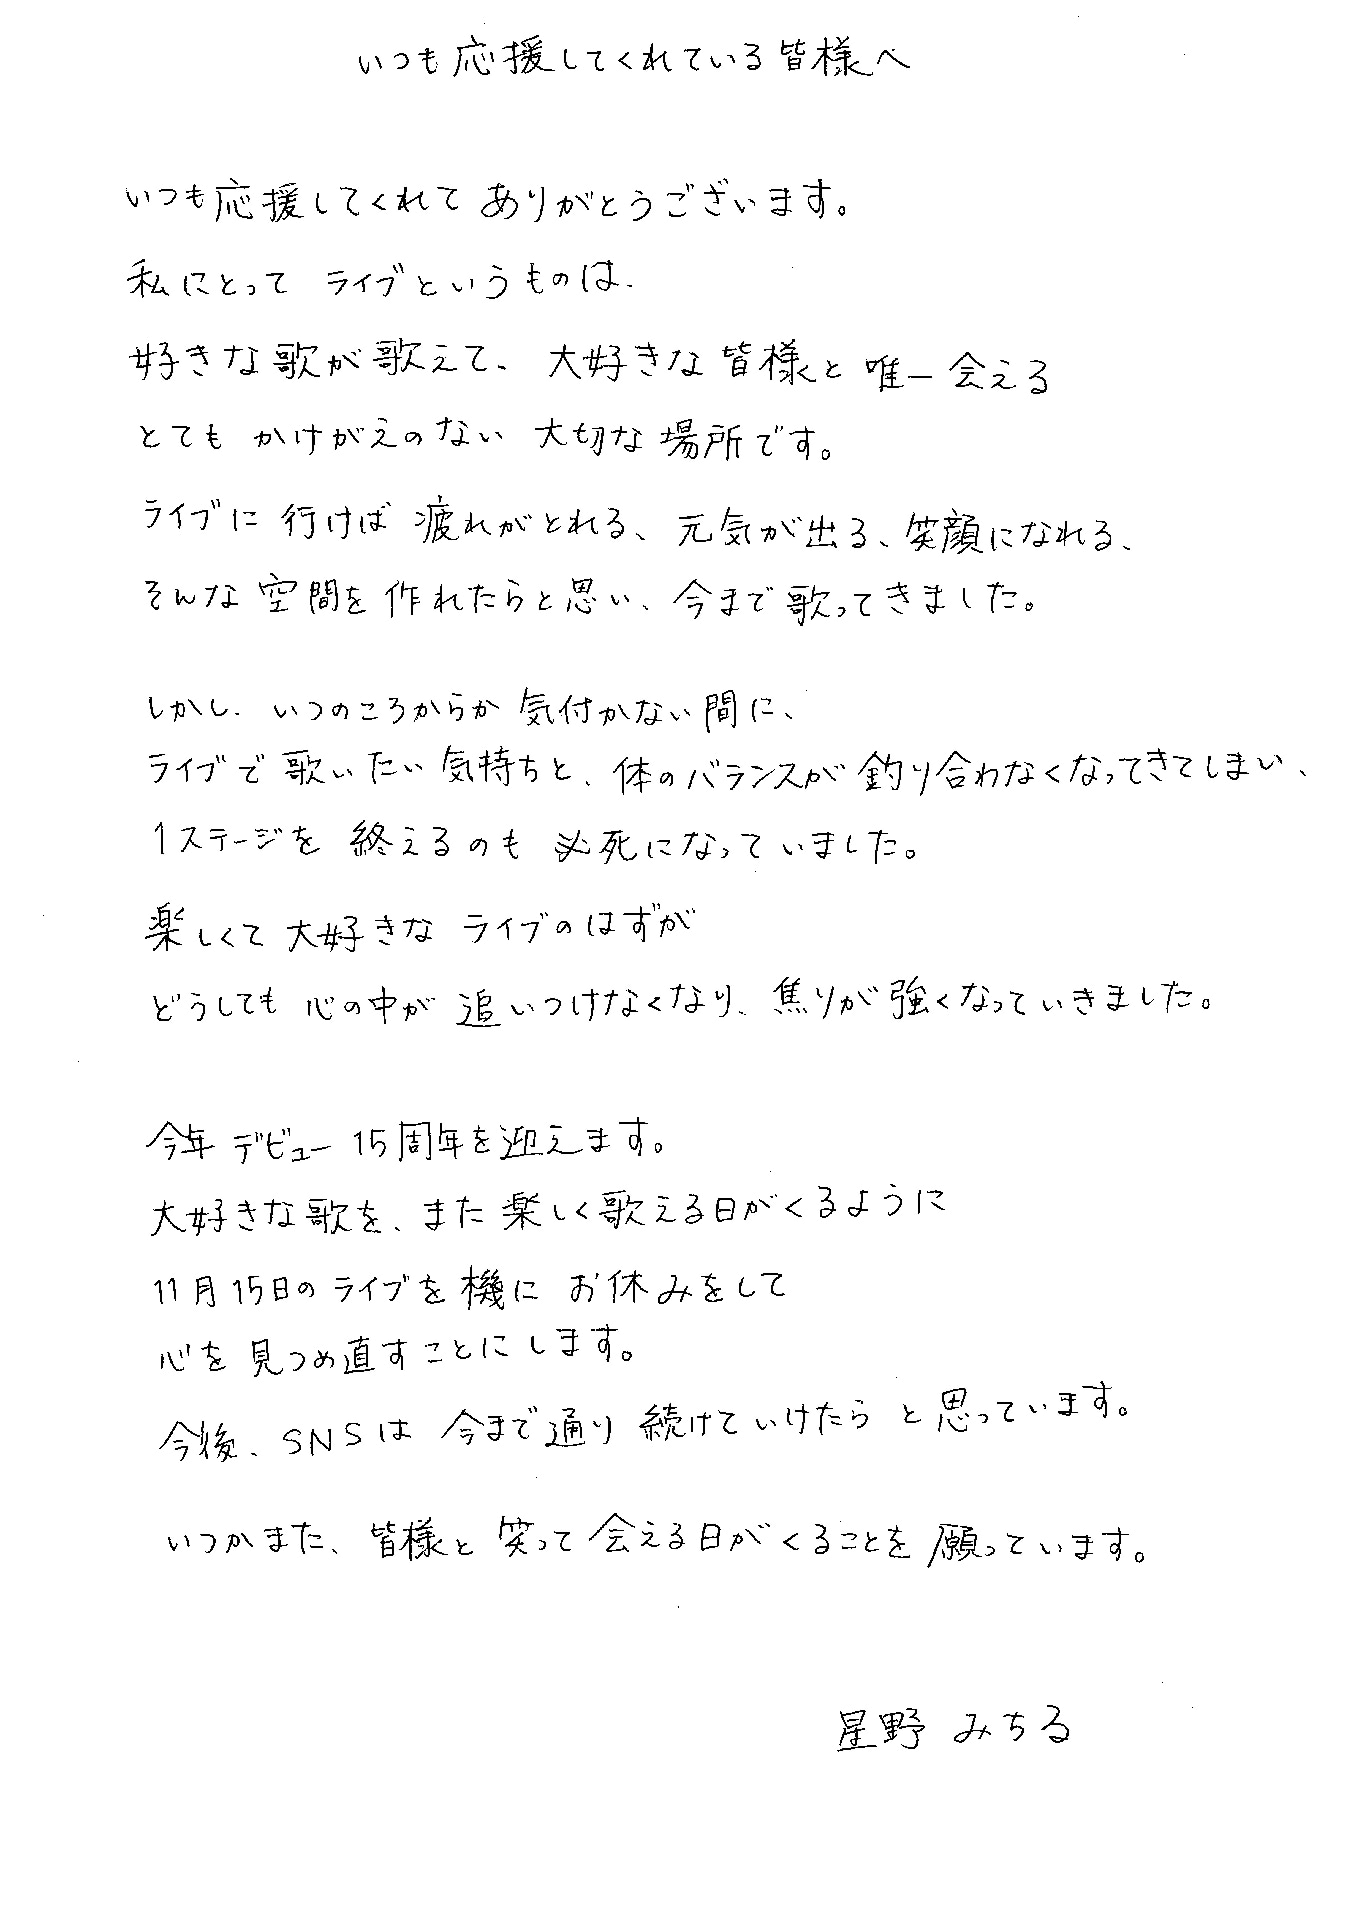 いつも応援してくれている皆様へ
いつも応援してくれて ありがとうございます。
私にとって ライブというものは、
好きな歌が歌えて、大好きな皆様と唯一会える
とても かけがえのない 大切な場所です。
ライブに 行けば 疲れがとれる、元気が出る、笑顔になれる、
そんな 空間を 作れたらと思い、今まで歌ってきました。
しかし、いつのころからか 気付かない間に、
ライブで 歌いたい 気持ちと、体のバランスが 釣り合わなくなってきてしまい、
1ステージを 終えるのも 必死になっていました。
楽しくて 大好きな ライブのはずが
どうしても 心の中が 追いつけなくなり、焦りが 強くなっていきました。
今年 デビュー 15周年を迎えます。
大好きな歌を、また 楽しく歌える日がくるように
11月15日のライブを機に お休みをして
心を 見つめ直すことにします。
今後、SNSは 今まで通り 続けていけたら と思っています。
いつかまた、皆様と 笑って 会える日がくることを 願っています。
星野 みちる